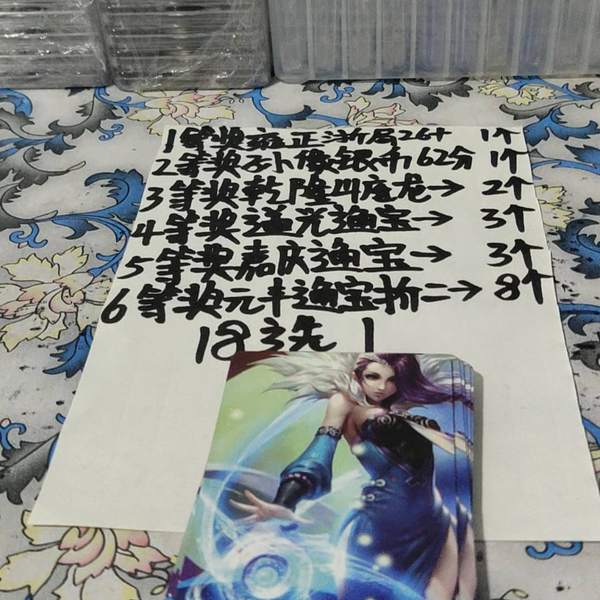 1等奖雍正浙局26+ 1个
2等奖孙像银币62分 1个
3等奖乾隆山底龙→ 2个
4等奖道光通宝→ 3个
5等奖嘉庆通宝→ 3个
6等奖元丰通宝折二→8个
18选1